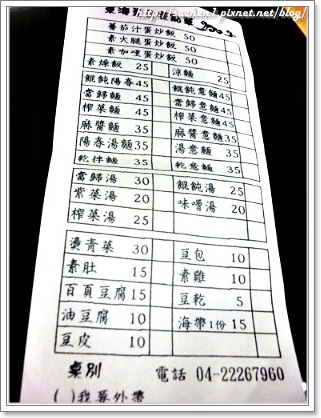 蕃茄汁蛋炒飯 50
素火腿蛋炒飯 50
素咖哩蛋炒飯 50
素燥飯 25 涼麵 25
餛飩陽春 45 餛飩意麵 45
當歸麵 45 當歸意麵 45
榨菜麵 45 榨菜意麵 45
麻醬麵 35 麻醬意麵 35
陽春湯麵 35 湯意麵 35
乾拌麵 35 乾意麵 35
當歸湯 30 餛飩湯 25
紫菜湯 20 味噌湯 20
榨菜湯 20
燙青菜 30 豆包 10
素肚 15 素雞 10
百頁豆腐 15 豆乾 5
油豆腐 10 海帶1份 15
豆皮 10
桌別 電話 04-22267960
( )我要外帶